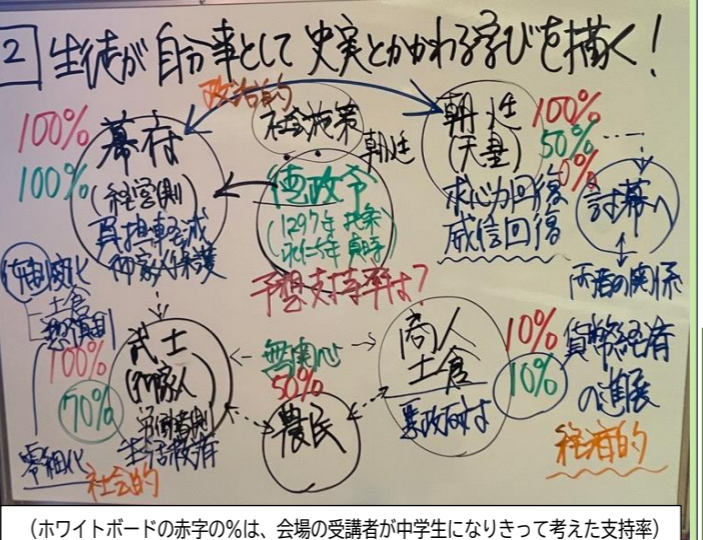 2 生徒が自分事として史実とかかわる学びを描く!
政治的
社会施策
朝廷
100%
100%
幕府
(経営側)
負担軽減
御家人保護
徳政令
(1297年 北条
永仁5年 貞時)
予想支持率は?
朝廷
(天皇)
求心力回復
威信回復
100%
50%
0%
討幕へ
両者の関係
体制変化
土倉
100%
70%
零細化
社会的
武士
(御家人
労働者側
生活救済
無関心
50%
農民
商人
土倉
悪政だな
10%
10%
貨幣経済
の進展
経済的
(ホワイトボードの赤字の%は、会場の受講者が中学生になりきって考えた支持率)